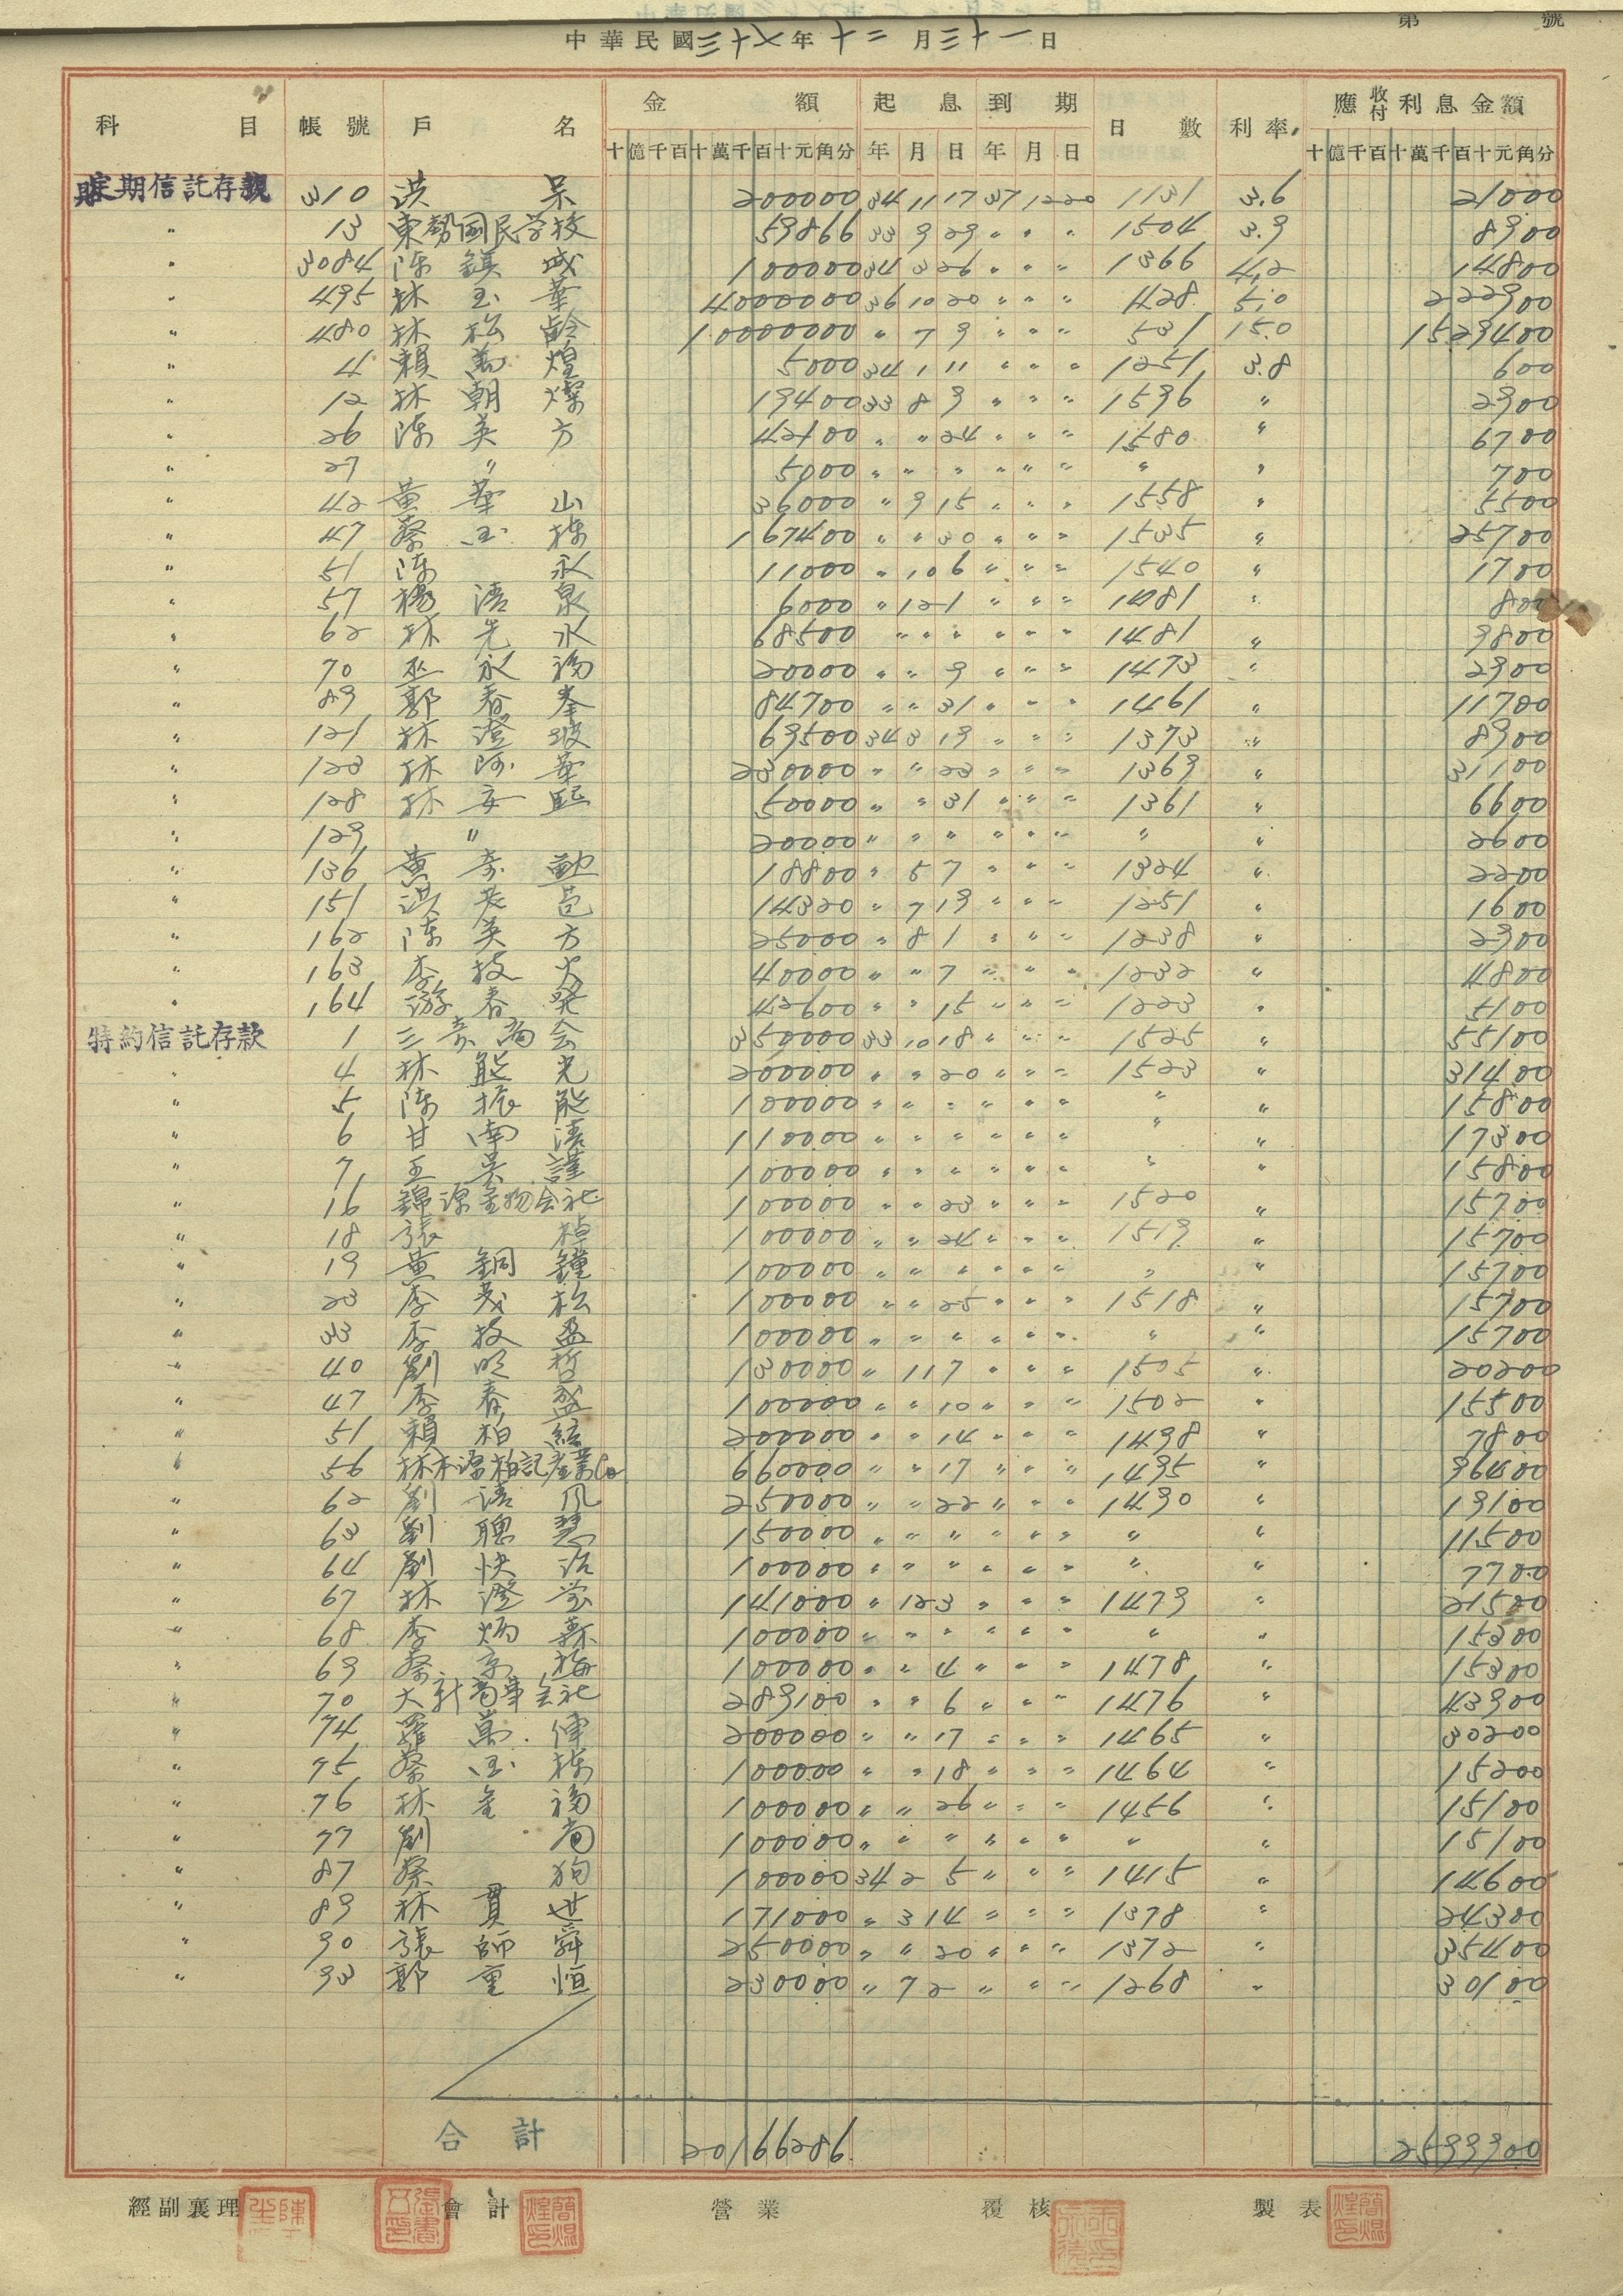 第 號
中華民國三十七年十二月三十一日
科目 帳號 戶名 金額 起息 到期 日數 利率 應收付利息金額
十億千百十萬千百十元角分 年月日 年月日 十億千百十萬千百十元角分
定期信託存款 310 洪 呆 200000 34 11 17 37 12 20 1131 3.6 21000
〃 13 東勢國民学校 59866 33 9 29 〃 〃 〃 1504 3.9 8900
〃 3084 陈鎮成 100000 34 3 26 〃 〃 〃 1366 4.2 14800
〃 495 林玉華 4000000 36 10 20 〃 〃 〃 428 5.0 222900
〃 480 林松齡 10000000 〃 7 9 〃 〃 〃 531 15.0 1529400
〃 4 賴萬煌 5000 34 1 11 〃 〃 〃 1251 3.8 600
〃 12 林朝燦 19400 33 8 9 〃 〃 〃 1596 〃 2900
〃 26 陈英方 42100 〃 〃 24 〃 〃 〃 1580 〃 6700
〃 27 〃 5000 〃 〃 〃 〃 〃 〃 〃 〃 700
〃 42 黄華山 36000 〃 9 15 〃 〃 〃 1558 〃 5500
〃 47 蔡玉栋 167400 〃 〃 30 〃 〃 〃 1535 〃 25700
〃 51 陈 永 11000 〃 10 6 〃 〃 〃 1540 〃 1700
〃 57 楊清泉 6000 〃 12 1 〃 〃 〃 1481 〃 800
〃 62 林先水 68500 〃 〃 〃 〃 〃 〃 1481 〃 9800
〃 70 巫永福 20000 〃 〃 9 〃 〃 〃 1473 〃 2900
〃 89 郭春峯 84700 〃 〃 31 〃 〃 〃 1461 〃 11700
〃 121 林澄坡 69500 34 3 19 〃 〃 〃 1373 〃 8900
〃 123 林阿華 230000 〃 〃 23 〃 〃 〃 1369 〃 31100
〃 128 林安熙 50000 〃 〃 31 〃 〃 〃 1361 〃 6600
〃 129 〃 20000 〃 〃 〃 〃 〃 〃 〃 〃 2600
〃 136 黄奇勳 18800 〃 5 7 〃 〃 〃 1324 〃 2200
〃 151 洪 14320 〃 7 19 〃 〃 〃 1251 〃 1600
〃 162 陈英方 25000 〃 8 1 〃 〃 〃 1238 〃 2900
〃 163 李枝火 40000 〃 〃 7 〃 〃 〃 1232 〃 4800
〃 164 游春癸 42600 〃 〃 15 〃 〃 〃 1223 〃 5100
特約信託存款 1 三奇商会 350000 33 10 18 〃 〃 〃 1525 〃 55100
〃 4 林熊光 200000 〃 〃 20 〃 〃 〃 1523 〃 31400
〃 5 陈振能 100000 〃 〃 〃 〃 〃 〃 〃 〃 15800
〃 6 甘南清 110000 〃 〃 〃 〃 〃 〃 〃 〃 17300
〃 7 王吴謹 100000 〃 〃 〃 〃 〃 〃 〃 〃 15800
〃 16 錦源金物会社 100000 〃 〃 23 〃 〃 〃 1520 〃 15700
〃 18 張 棹 100000 〃 〃 24 〃 〃 〃 1519 〃 15700
〃 19 黄銅鐘 100000 〃 〃 〃 〃 〃 〃 〃 〃 15700
〃 23 李茂松 100000 〃 〃 25 〃 〃 〃 1518 〃 15700
〃 33 李枝盈 100000 〃 〃 〃 〃 〃 〃 〃 〃 15700
〃 40 劉明哲 130000 〃 11 7 〃 〃 〃 1505 〃 20200
〃 47 李春盛 100000 〃 〃 10 〃 〃 〃 1502 〃 15500
〃 51 賴柏絃 200000 〃 〃 14 〃 〃 〃 1498 〃 7800
〃 56 林本源柏記産業 660000 〃 〃 17 〃 〃 〃 1495 〃 96400
〃 62 劉清風 250000 〃 〃 22 〃 〃 〃 1490 〃 19100
〃 63 劉聰慧 150000 〃 〃 〃 〃 〃 〃 〃 〃 11500
〃 64 劉快治 100000 〃 〃 〃 〃 〃 〃 〃 〃 7700
〃 67 林澄堂 141000 〃 12 3 〃 〃 〃 1479 〃 21500
〃 68 李炳森 100000 〃 〃 〃 〃 〃 〃 〃 〃 15300
〃 69 蔡京梅 100000 〃 〃 4 〃 〃 〃 1478 〃 15300
〃 70 大新商事会社 289100 〃 〃 6 〃 〃 〃 1476 〃 43900
〃 74 羅萬俥 200000 〃 〃 17 〃 〃 〃 1465 〃 30200
〃 75 蔡玉栋 100000 〃 〃 18 〃 〃 〃 1464 〃 15200
〃 76 林金福 100000 〃 〃 26 〃 〃 〃 1456 〃 15100
〃 77 劉 100000 〃 〃 〃 〃 〃 〃 〃 〃 15100
〃 87 蔡 狗 100000 34 2 5 〃 〃 〃 1415 〃 14600
〃 89 林貫世 171000 〃 3 14 〃 〃 〃 1378 〃 24300
〃 90 張師舜 250000 〃 〃 20 〃 〃 〃 1372 〃 35400
〃 93 郭重恒 230000 〃 7 2 〃 〃 〃 1268 〃 30100
合計 20166286 2599900
經副襄理 會計 營業 覆核 製表